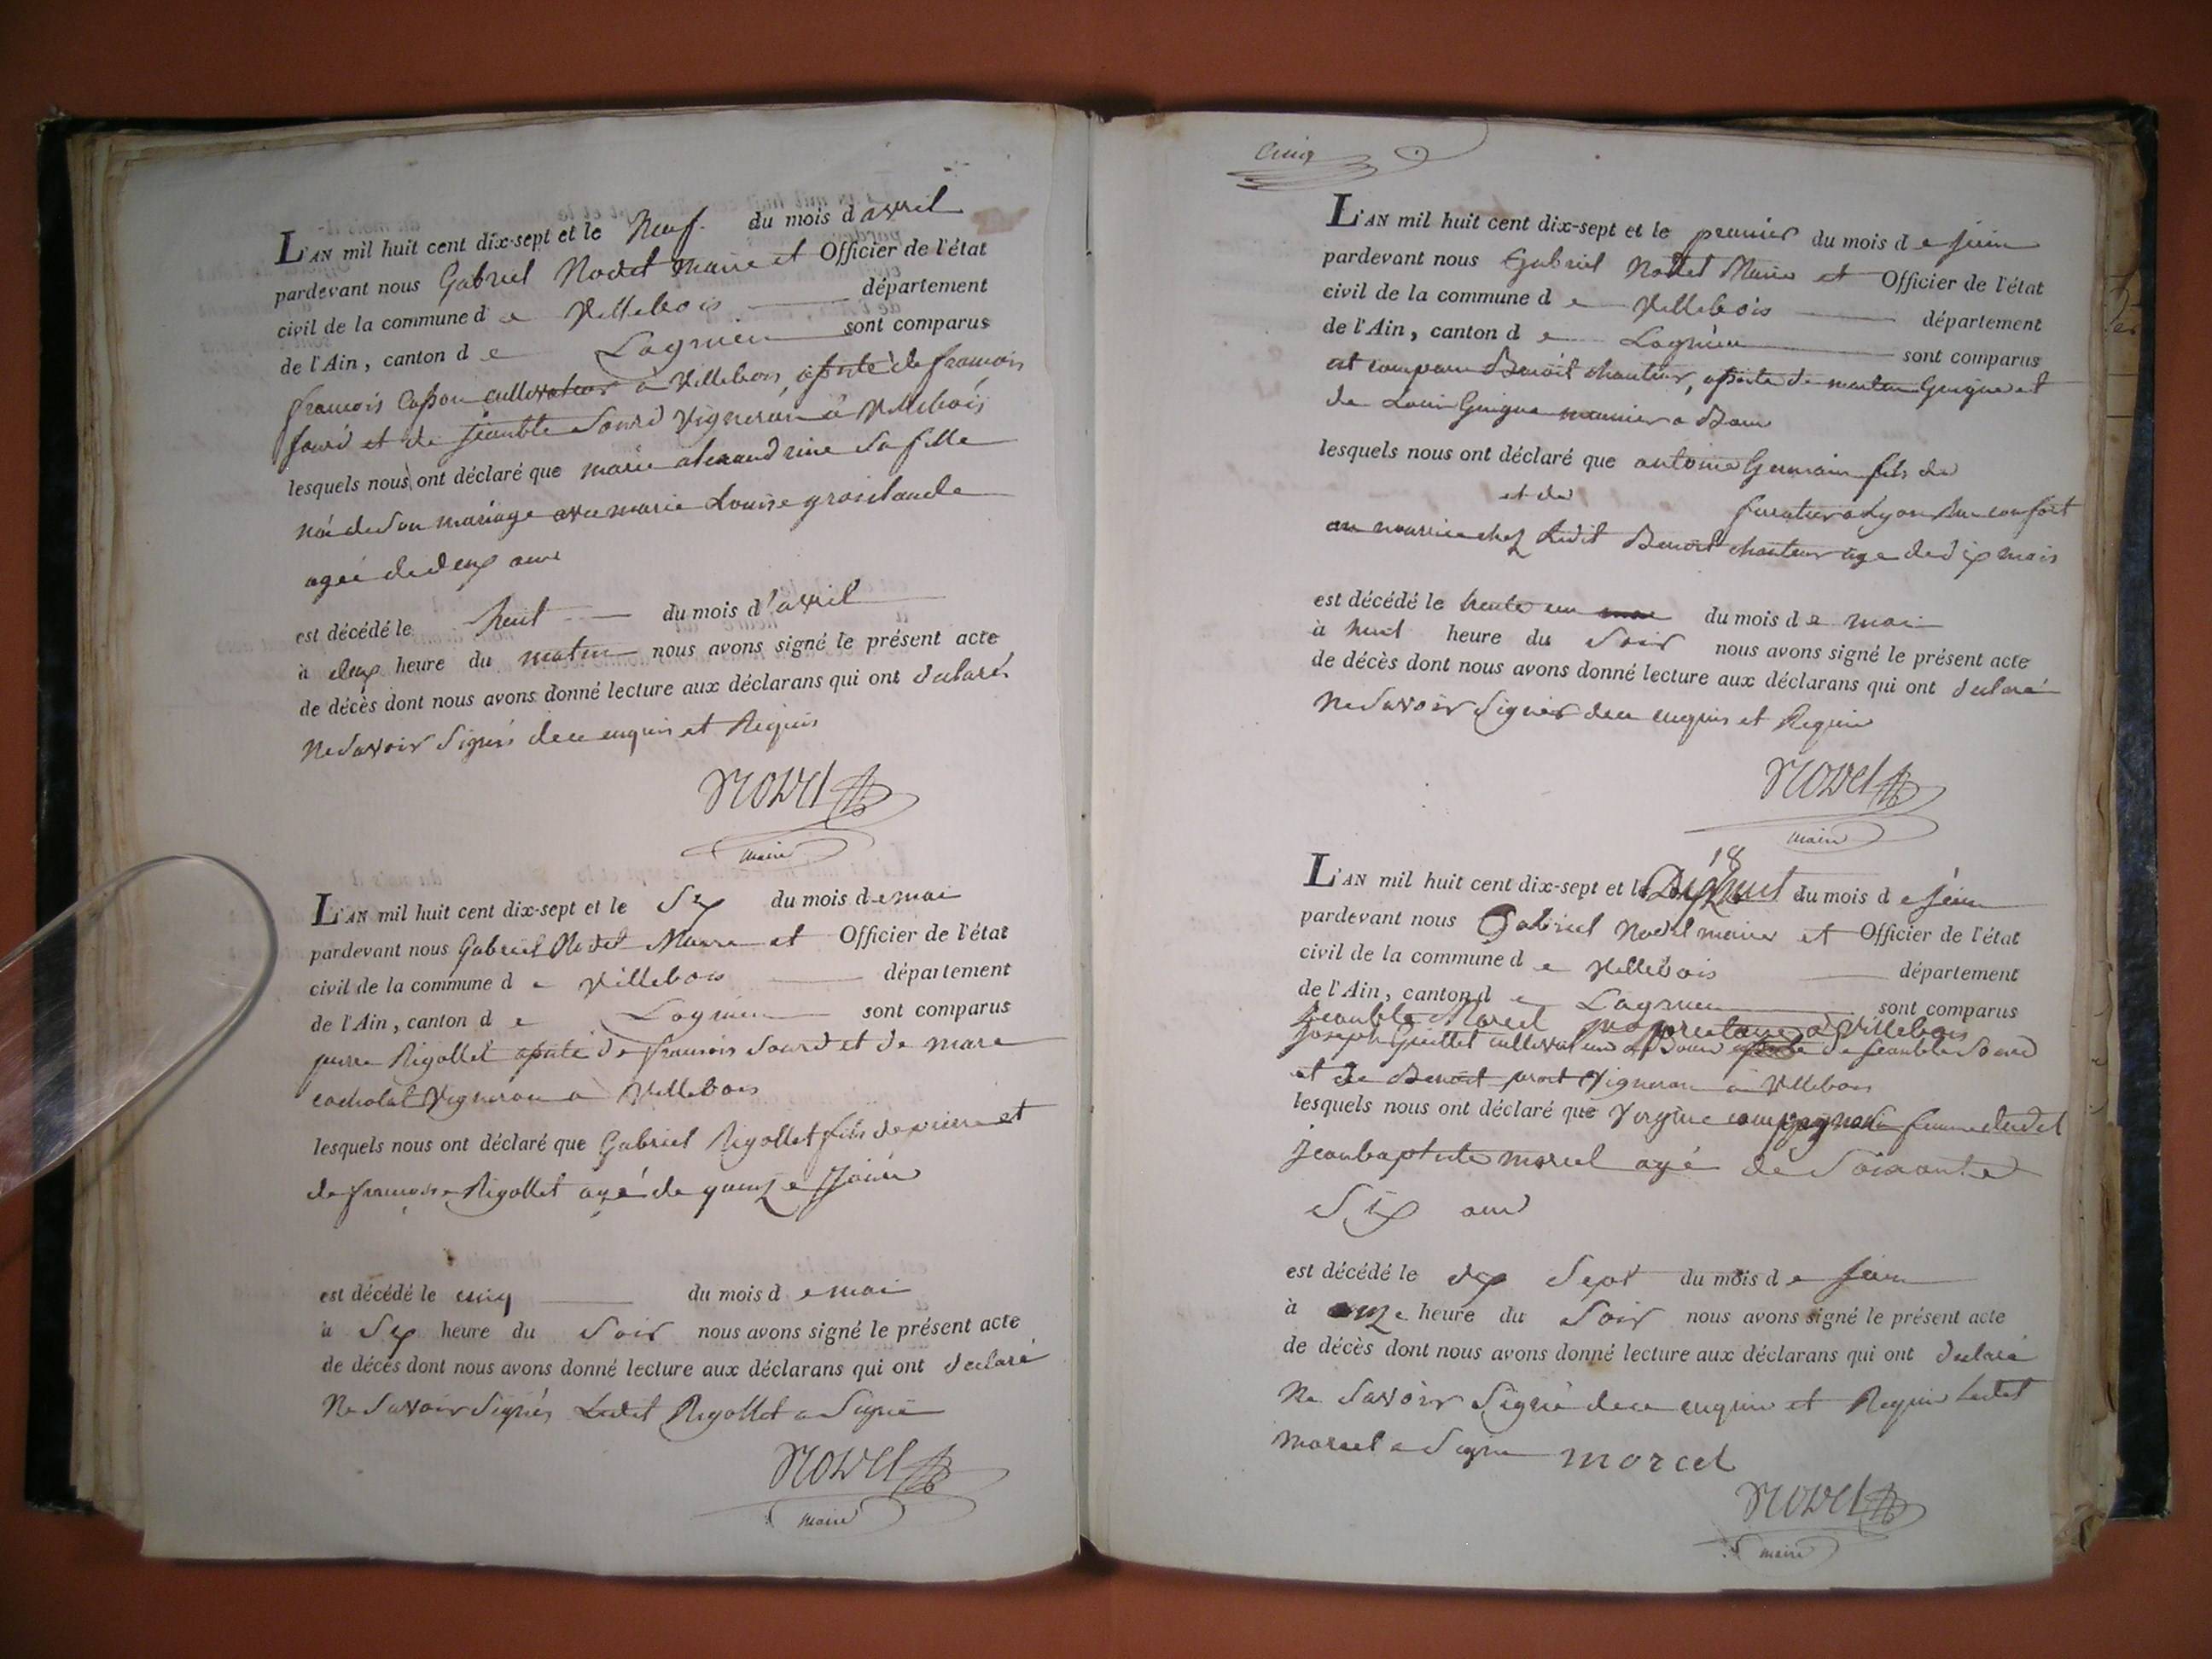 L'AN mil huit cent dix-sept et le Neuf du mois d'avril
pardevant nous Gabriel Nodet Maire et Officier de l'état
civil de la commune de Villebois département
de l'Ain, canton de Lagnieu sont comparus
francois cultivateur a Villebois, assisté de francois
et de Vigneron a Villebois
lesquels nous ont déclaré que marie alexandrine sa fille
née de son mariage avec marie Louise
agée de deux ans
est décédé le huit du mois d'avril
à deux heure du matin nous avons signé le présent acte
de décès dont nous avons donné lecture aux déclarans qui ont declaré
Ne savoir Signés de ce enquis et Requis
maire
L'AN mil huit cent dix-sept et le Six du mois de mai
pardevant nous Gabriel Nodet Maire et Officier de l'état
civil de la commune de Villebois département
de l'Ain, canton de Lagnieu sont comparus
pierre Rigollet assisté de francois Sourd et de marc
cocholat Vigneron a Villebois
lesquels nous ont déclaré que Gabriel Rigollet fils de pierre et
de francoise Rigollet agé de quinze Jours
est décédé le cinq du mois de mai
à Six heure du Soir nous avons signé le présent acte
de décès dont nous avons donné lecture aux déclarans qui ont declaré
Ne Savoir Signés Ledit Rigollet a Signé
maire
Cinq
L'AN mil huit cent dix-sept et le premier du mois de juin
pardevant nous Gabriel Nodet Maire et Officier de l'état
civil de la commune de Villebois département
de l'Ain, canton de Lagnieu sont comparus
est comparu Benoit chanteur, assisté de Guigue et
de Louis Guigue a
lesquels nous ont déclaré que antoine Germain fils de
et de a Lyon
en nourrice chez Ledit Benoit chanteur age de dix mois
est décédé le trente un du mois de mai
à huit heure du Soir nous avons signé le présent acte
de décès dont nous avons donné lecture aux déclarans qui ont declaré
Ne Savoir Signer de ce enquis et Requis
maire
18
L'AN mil huit cent dix-sept et le Dixhuit du mois de juin
pardevant nous Gabriel Nodet maire et Officier de l'état
civil de la commune de Villebois département
de l'Ain, canton de Lagnieu sont comparus
Morcel proprietaire a Villebois
joseph Guillet cultivateur a de
et de Benoit Vigneron a Villebois
lesquels nous ont déclaré que femme dudit
jeanbaptiste morcel agé de Soixante
Six ans
est décédé le dix Sept du mois de juin
à onze heure du Soir nous avons signé le présent acte
de décès dont nous avons donné lecture aux déclarans qui ont declaré
Ne Savoir Signé de ce enquis et Requis Ledit
Morcel a Signé morcel
maire